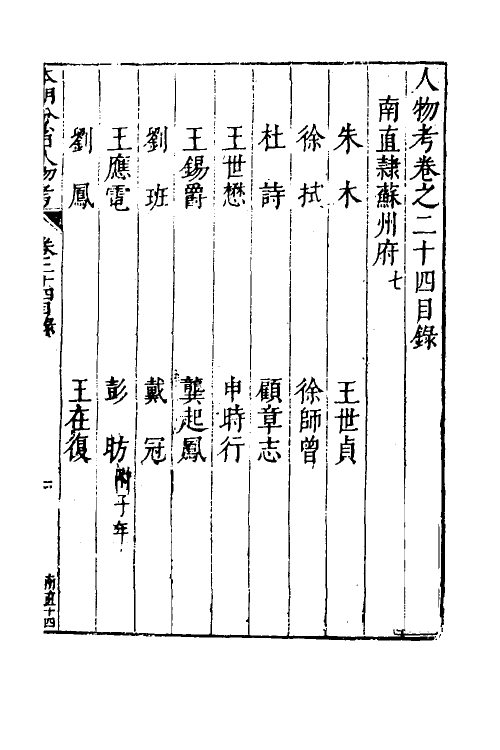 人物考卷之二十四目錄
南直隸蘇州府七
朱木 王世貞
徐栻 徐師曾
杜詩 顧章志
王世懋 申時行
王錫爵 龔起鳳
劉班 戴冠
王應電 彭昉附子年
劉鳳 王在復
本朝分省人物考 卷二十四目錄 一 南直十四